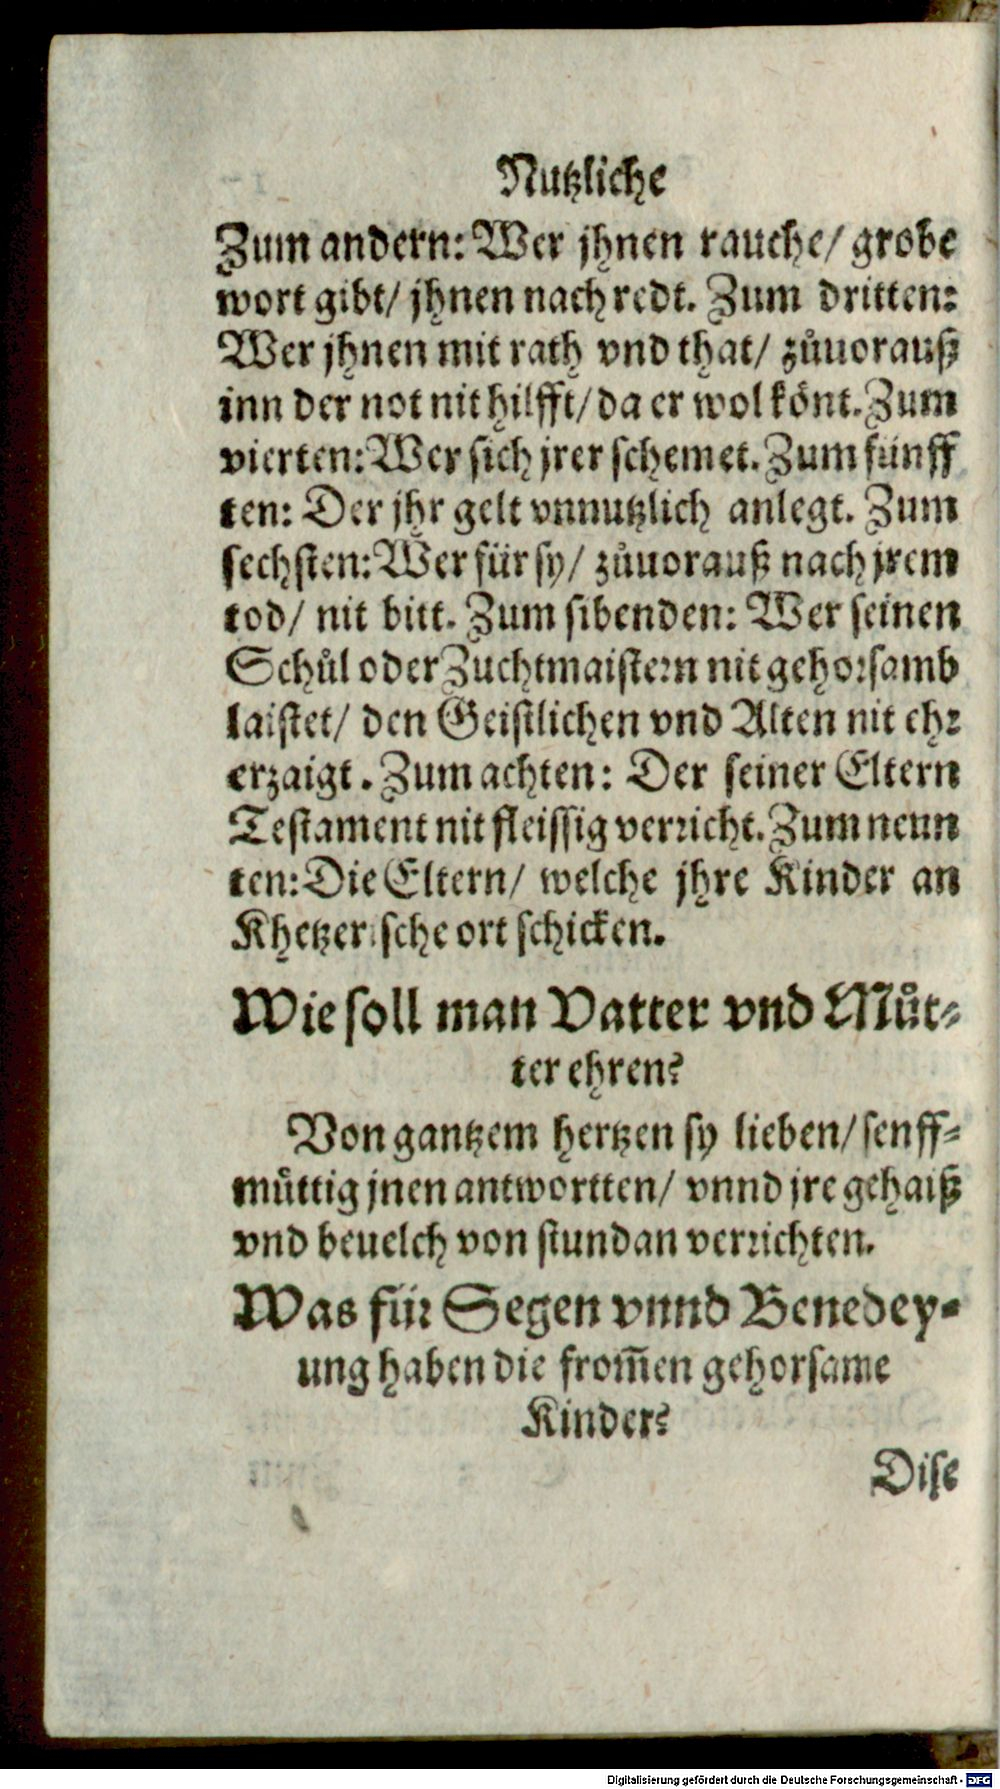 Nutzliche
Zum andern: Wer jhnen rauche/ grobe
wort gibt/ jhnen nach redt. Zum dritten:
Wer jhnen mit rath vnd that/ zůuorauß
inn der not nit hilfft/ da er wol könt. Zum
vierten: Wer sich jrer schemet. Zum fünff
ten: Der jhr gelt vnnutzlich anlegt. Zum
sechsten: Wer für sy/ zůuorauß nach jrem
tod/ nit bitt. Zum sibenden: Wer seinen
Schůl oder Zuchtmaistern nit gehorsamb
laistet/ den Geistlichen vnd Alten nit ehr
erzaigt. Zum achten: Der seiner Eltern
Testament nit fleissig verricht. Zum neun
ten: Die Eltern/ welche jhre Kinder an
Khetzerische ort schicken.
Wie soll man Vatter vnd Můt-
ter ehren?
Von gantzem hertzen sy lieben/ senff-
můttig jnen antwortten/ vnnd jre gehaiß
vnd beuelch von stund an verrichten.
Was für Segen vnnd Benedey-
ung haben die from̃en gehorsame
Kinder?
Dise
Digitalisierung gefördert durch die Deutsche Forschungsgemeinschaft - DFG